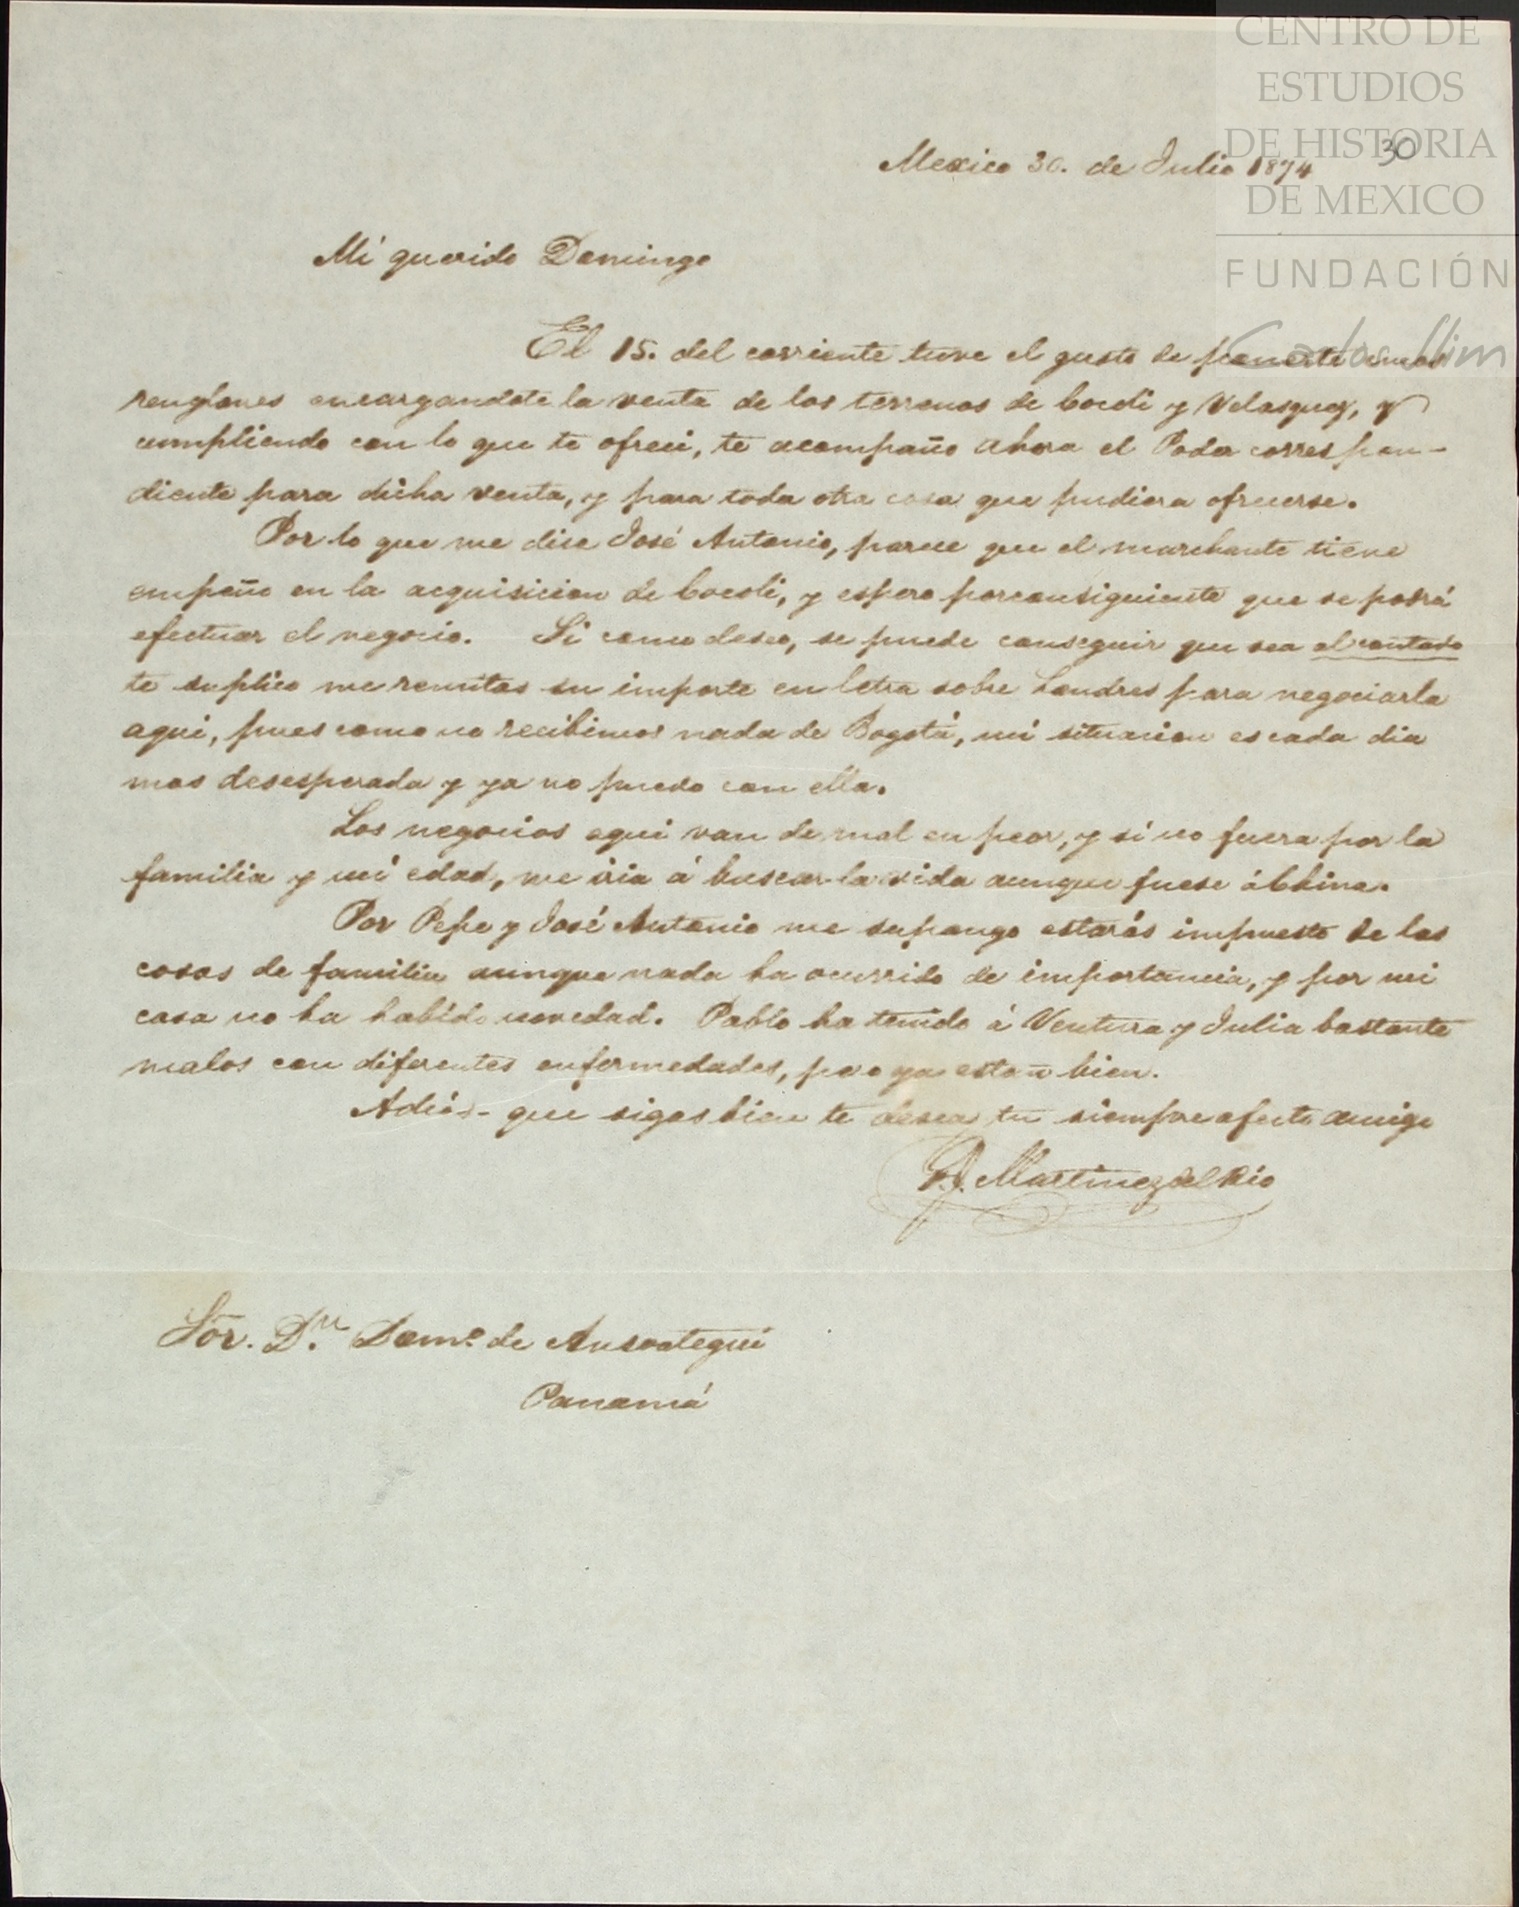 CENTRO DE
ESTUDIOS
DE HISTORIA
DE MEXICO
FUNDACIÓN
Carlos Slim
30
Mexico 30. de Julio 1874
Mi querido Domingo
El 15. del corriente tuve el gusto de ponerte unos
renglones encargandote la venta de los terrenos de Cocoli y Velasquez, y
cumpliendo con lo que te ofreci, te acompaño ahora el Poder correspon-
diente para dicha venta, y para toda otra cosa que pudiera ofrecerse.
Por lo que me dice José Antonio, parece que el marchante tiene
empeño en la acquisicion de Cocoli, y espero porconsiguiente que se podrá
efectuar el negocio. Si como deseo, se puede conseguir que sea al contado
te suplico me remitas su importe en letra sobre Londres para negociarla
aqui, pues como no recibimos nada de Bogotá, mi situacion es cada dia
mas desesperada y ya no puedo con ella.
Los negocios aqui van de mal en peor, y si no fuera por la
familia y mi edad, me iria á buscar la vida aunque fuese á China.
Por Pepe y José Antonio me supongo estarás impuesto de las
cosas de familia aunque nada ha ocurrido de importancia, y por mi
casa no ha habido novedad. Pablo ha tenido á Ventura y Julia bastante
malos con diferentes enfermedades, pero ya estan bien.
Adios - que sigas bien te desea tu siempre afecto amigo
Martinez del Rio
Sor. Dn. Domo. de Ansoategui
Panamá